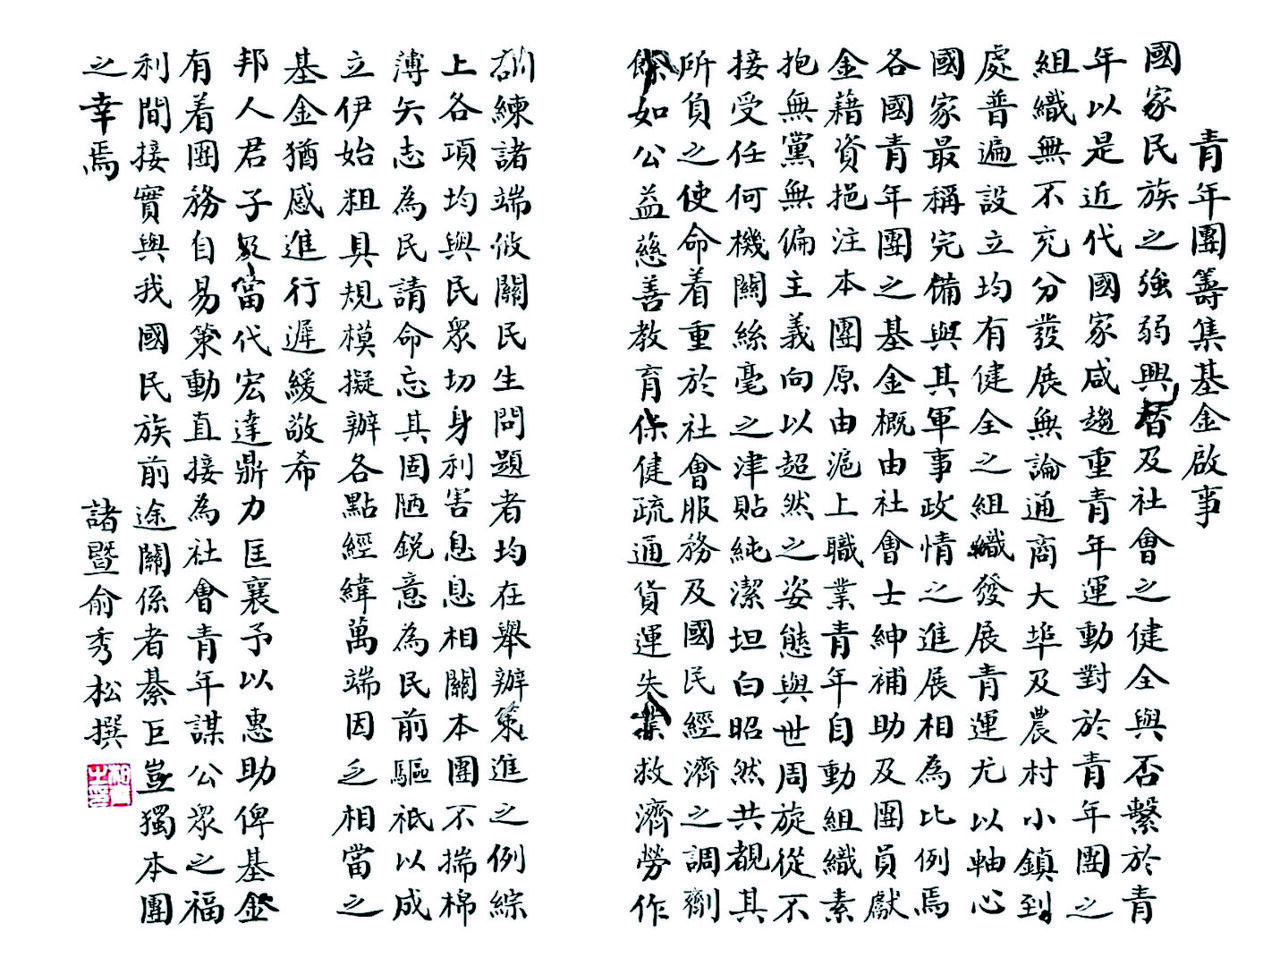 青年團籌集基金啟事
國家民族之強弱興替及社會之健全與否繫於青
年以是近代國家咸趨重青年運動對於青年團之
組織無不充分發展無論通商大埠及農村小鎮到
處普遍設立均有健全之組織發展青運尤以軸心
國家最稱完備與其軍事政情之進展相為比例焉
各國青年團之基金概由社會士紳補助及團員獻
金藉資挹注本團原由滬上職業青年自動組織素
抱無黨無偏主義向以超然之姿態與世周旋從不
接受任何機關絲毫之津貼純潔坦白昭然共覩其
所負之使命着重於社會服務及國民經濟之調劑
如公益慈善教育保健疏通貨運失業救濟勞作
訓練諸端攸關民生問題者均在舉辦策進之例綜
上各項均與民眾切身利害息息相關本團不揣棉
薄矢志為民請命忘其固陋銳意為民前驅祗以成
立伊始粗具規模擬辦各點經緯萬端因之相當之
基金猶感進行遲緩敬希
邦人君子及當代宏達鼎力匡襄予以惠助俾基金
有着團務自易策動直接為社會青年謀公眾之福
利間接實與我國民族前途關係者綦巨豈獨本團
之幸焉
諸暨俞秀松撰